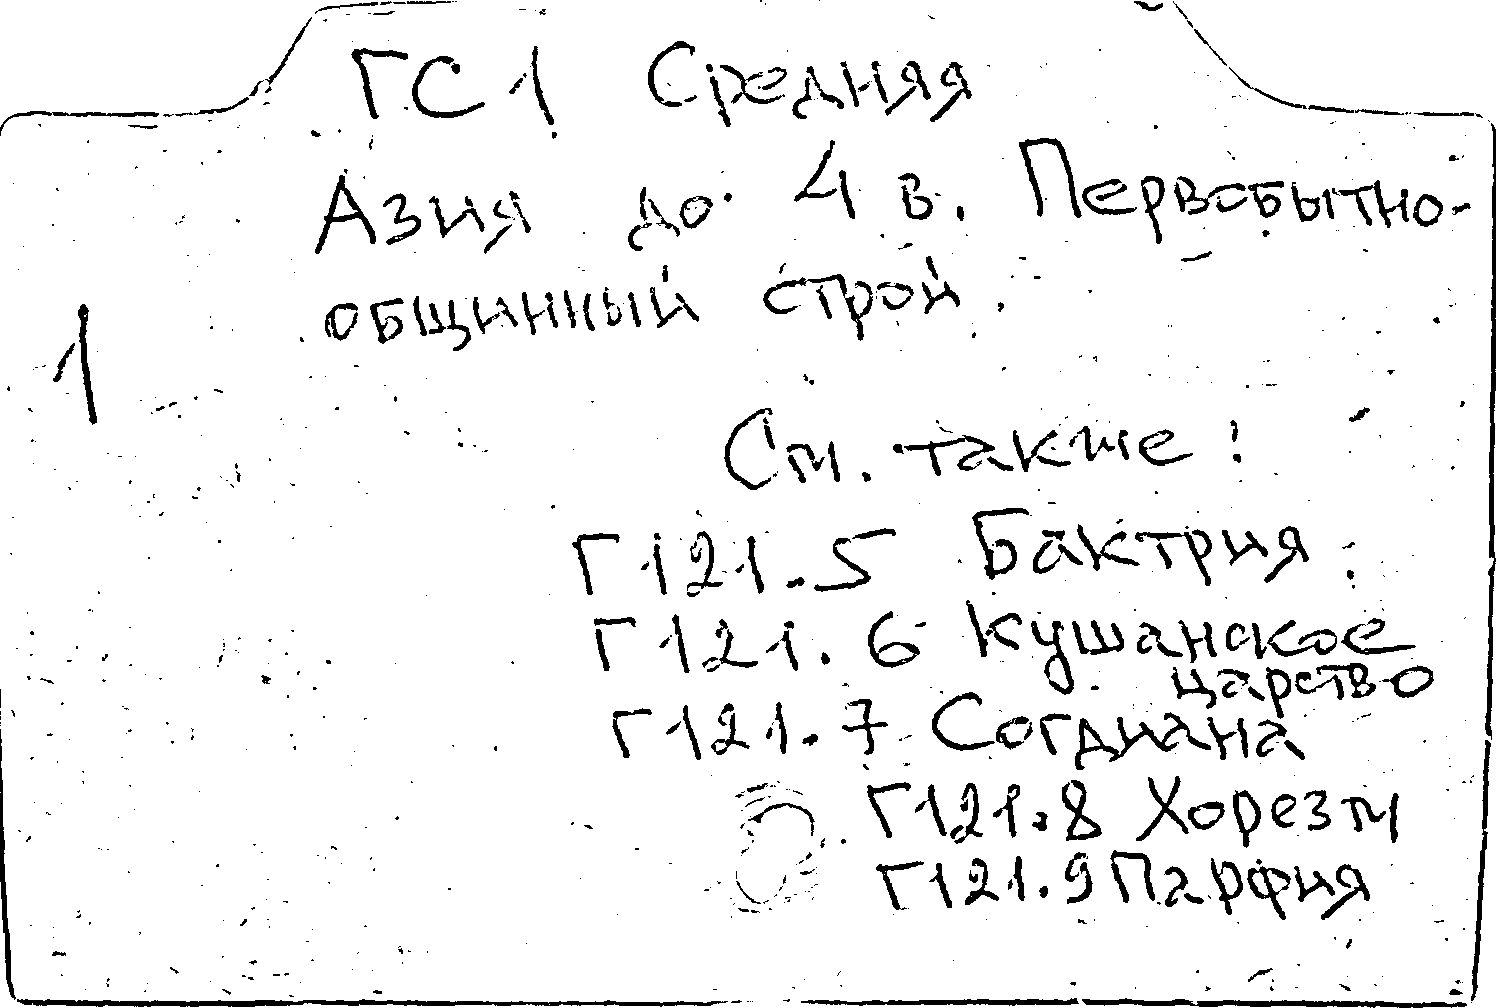 ГС1 Средняя
Азия до 4 в. Первобытно-
общинный строй.
1
См. также:
Г121.5 Бактрия.
Г121.6 Кушанское
царство
Г121.7 Согдиана
Г121.8 Хорезм
Г121.9 Парфия